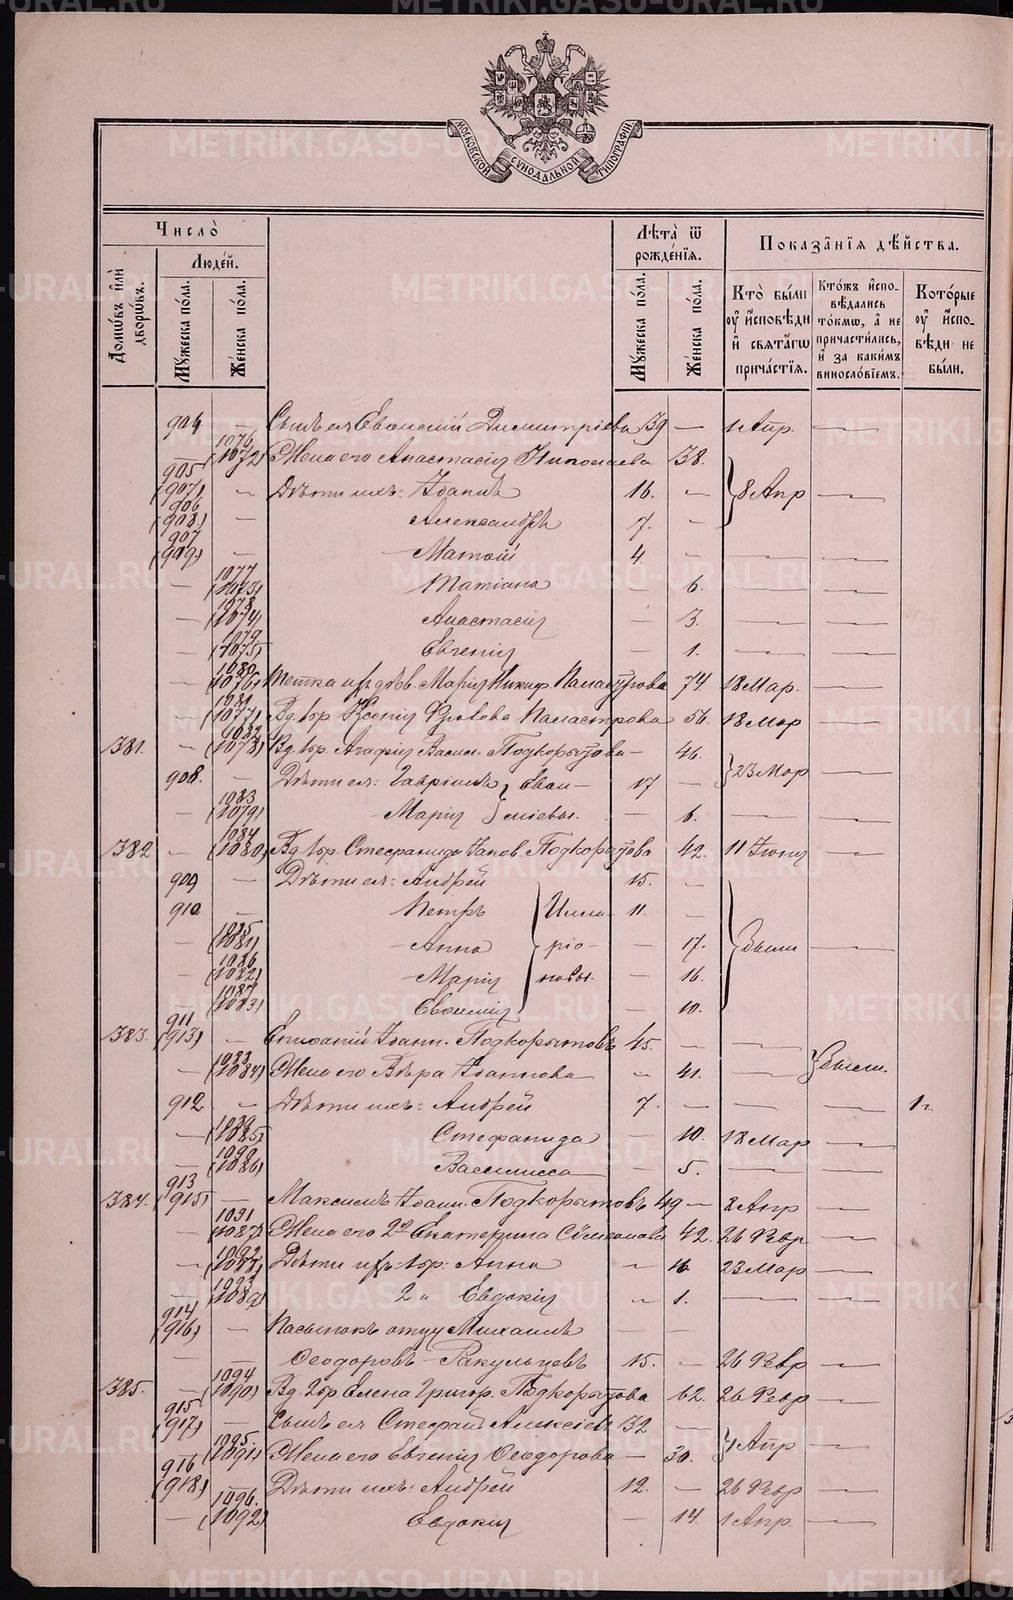 METRIKI.GASO-URAL.RU
МОСКОВСКОЙ СУНОДАЛЬНОЙ ТИПОГРАФІИ
Число̀
Домѡвъ и҆лѝ дворѡвъ.
Людей.
Мꙋжеска по́ла.
Же́нска по́ла.
Лѣта̀ ѿ рожде́нїѧ.
Мꙋжеска по́ла.
Же́нска по́ла.
Показа̑нїѧ дѣ́йства.
Кто̀ бы́ли ᲂу҆ и҆сповѣди и҆ свѧта́гѡ прича́стїѧ.
Кто́жъ и҆спо-вѣдались то́кмѡ, а҆ не причасти́лись, и҆ за каки́мъ винослові́емъ.
Кото́рые ᲂу҆ и҆спо-вѣди не бы́ли.
904 — Сынъ ея Евѳимій Димитріевъ 39 — 1 Апр. —
— 1076 (1072) Жена его Анастасія Николаева 38.
905 (907) — Дѣти ихъ: Іоаннъ 16. — } 8 Апр —
906 (908) — Александръ 7. —
907 (909) — Матѳій 4 — — —
— 1077 (1073) Татіана — 6. — —
— 1078 (1074) Анастасія — 3. — —
— 1079 (1075) Евгенія — 1. — —
— 1080 (1076) Тетка ихъ дѣв. Марія Никиф. Паластрова 74 18 Мар. —
— 1081 (1077) Вд. 1бр. Ксенія Фролова Паластрова 56. 18 Мар —
381. — 1082 (1078) Вд. 1бр. Агафія Васил. Подкорытова — 46. } 23 Мар —
908. — Дѣти ея: Гавріилъ } Евѳи- 17 —
— 1083 (1079) Марія } міевы. — 6.
382 — 1084 (1080) Вд. 1бр. Стефанида Іаков. Подкорытова 42. 11 Іюня —
909 — Дѣти ея: Андрей 15. —
910 — Петръ } Илла- 11. —
— 1085 (1081) Анна } ріо- — 17. } Были —
— 1086 (1082) Марія } новы. — 16.
— 1087 (1083) Евѳимія — 10.
383. 911 (913) — Епифаній Іоанн. Подкорытовъ 45. — —
— 1088 (1084) Жена его Вѣра Іоаннова — 41. — } Были.
912 — Дѣти ихъ: Андрей 7. — — — 1.
— 1089 (1085) Стефанида — 10. 18 Мар —
— 1090 (1086) Василисса — 5. — —
384. 913 (915) — Максимъ Іоанн. Подкорытовъ 49 — 8 Апр —
— 1091 (1087) Жена его 2го Екатерина Сѵмеонова 42. 26 Февр —
— 1092 (1088) Дѣти ихъ: 1бр: Анна — 16 23 Мар —
— 1093 (1089) 2 " Евдокія — 1. — —
914 (916) — Пасынокъ отцу Михаилъ — —
— — Ѳеодоровъ Ракульцевъ 15. — 26 Февр —
385. — 1094 (1090) Вд. 2бр. Елена Григор. Подкорытова 62. 26 Февр —
915 (917) — Сынъ ея Стефанъ Алексіевъ 32 —
— 1095 (1091) Жена его Евгенія Ѳеодорова — 30. } 1 Апр —
916 (918) — Дѣти ихъ: Андрей 12. — 26 Февр —
— 1096. (1092) Евдокія — 14. 1 Апр. —